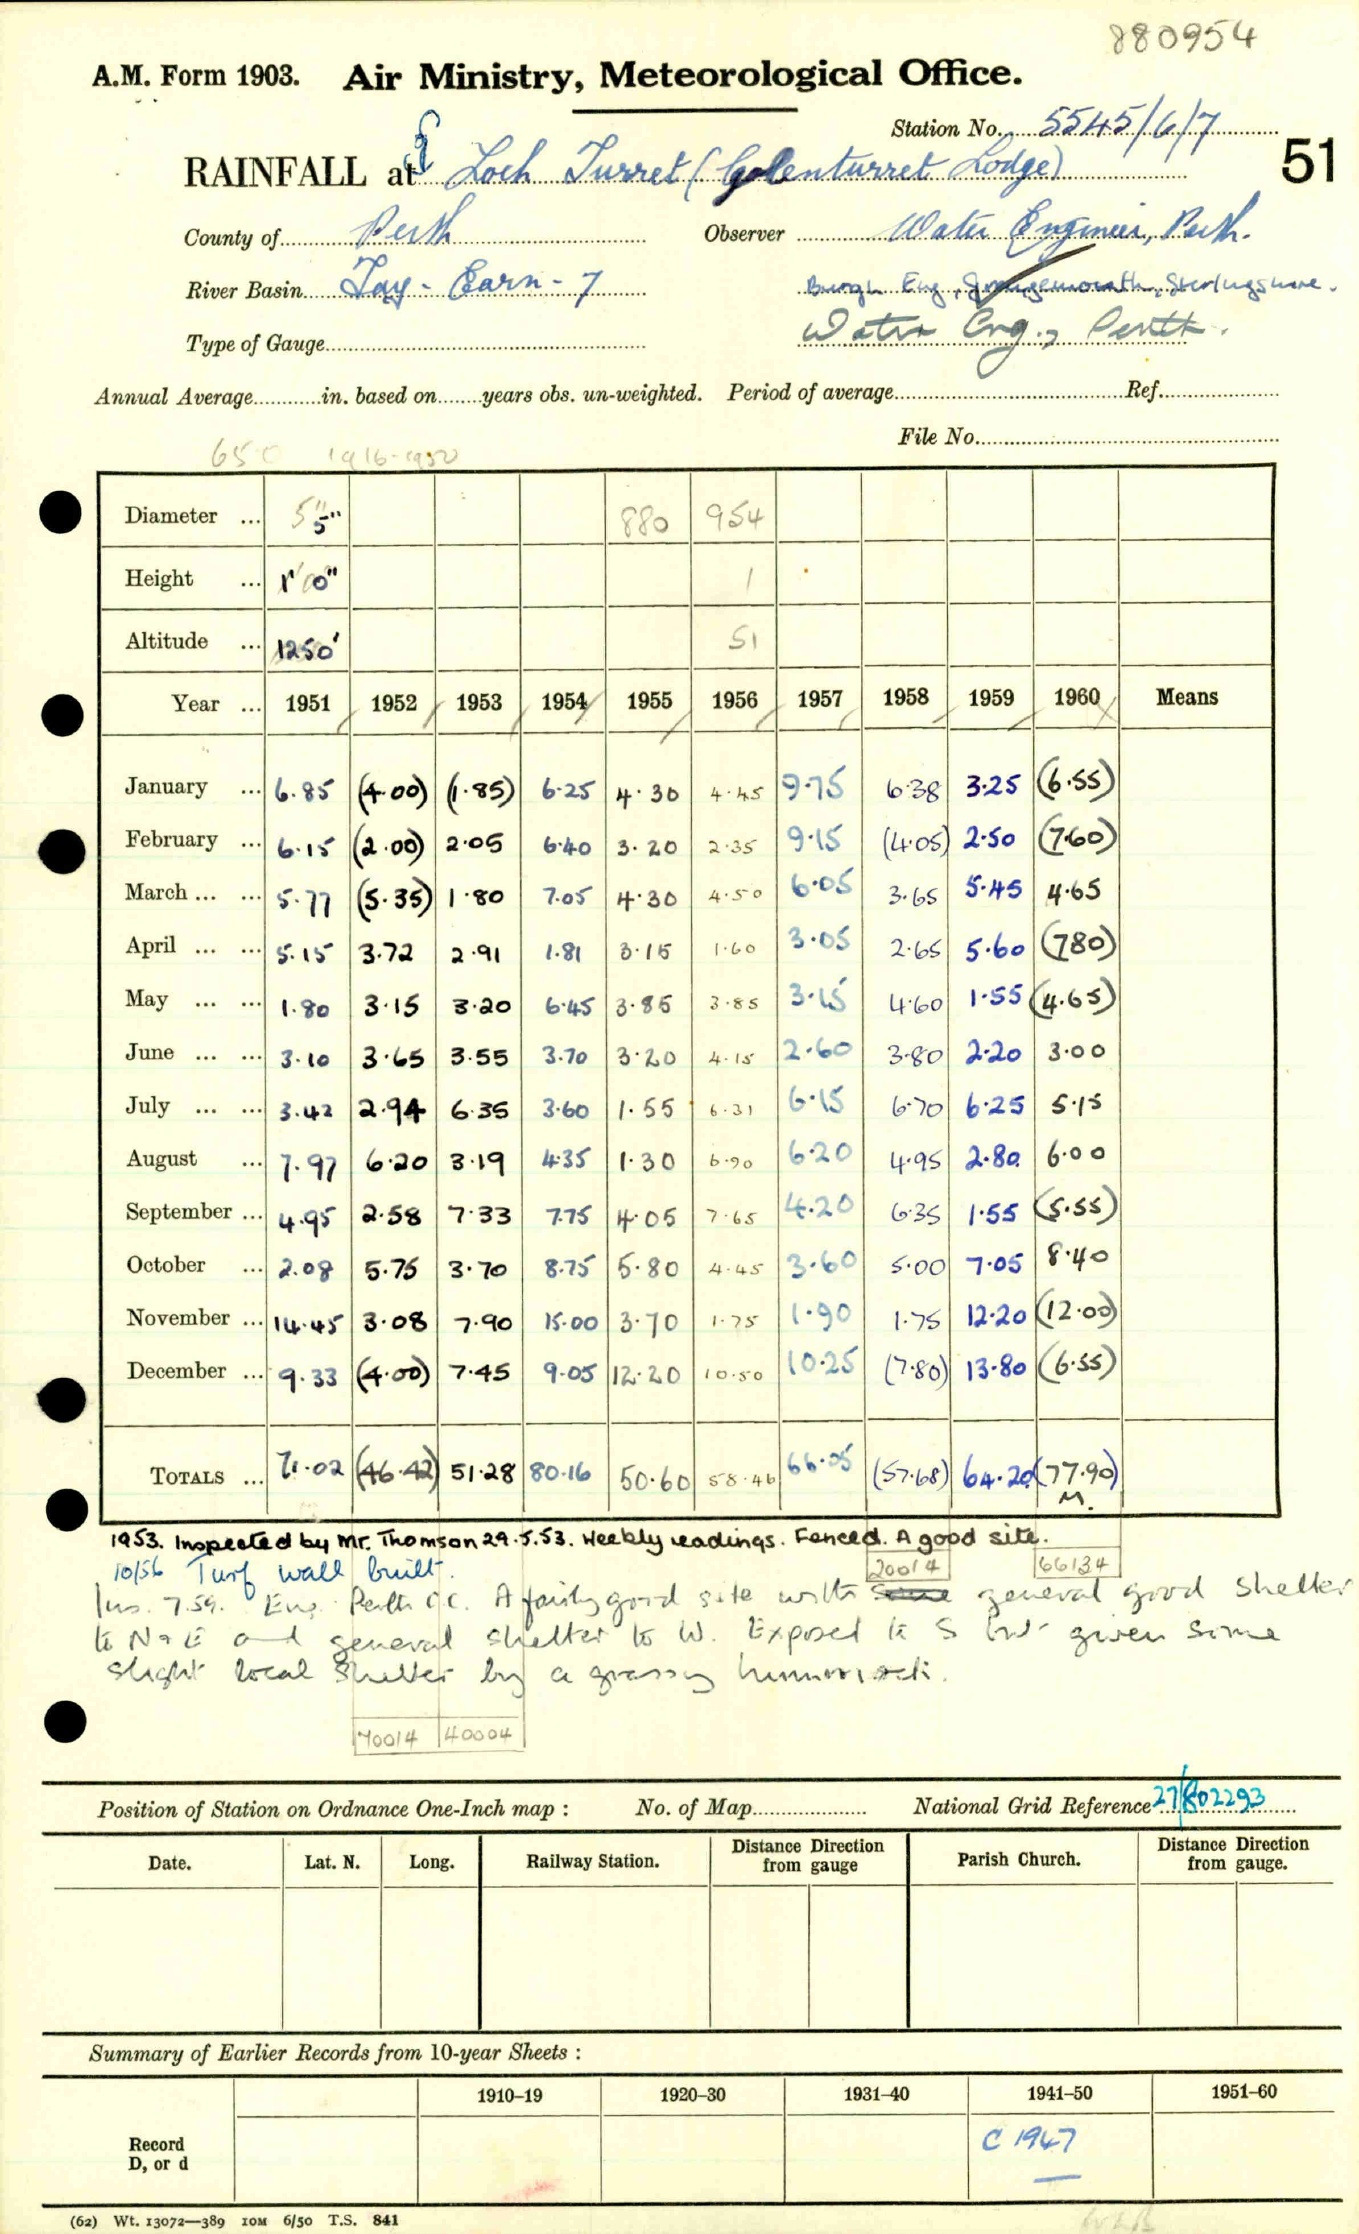 880954
A.M. Form 1903. Air Ministry, Meteorological Office.
Station No. 5545/6/7
51
RAINFALL at Loch Turret (Glenturret Lodge)
County of Perth Observer Water Engineer, Perth.
River Basin Tay - Earn - 7 Burgh Eng, Grangemouth, Stirlingshire.
Type of Gauge Water Eng., Perth.
Annual Average in. based on years obs. un-weighted. Period of average Ref.
File No.
650 1916-1950
Diameter ... 5" 5" 880 954
Height ... 1' 0" 1
Altitude ... 1250' 51
Year ... 1951 1952 1953 1954 1955 1956 1957 1958 1959 1960 Means
January ... 6.85 (4.00) (1.85) 6.25 4.30 4.45 9.75 6.38 3.25 (6.55)
February ... 6.15 (2.00) 2.05 6.40 3.20 2.35 9.15 (4.05) 2.50 (7.60)
March ... ... 5.77 (5.35) 1.80 7.05 4.30 4.50 6.05 3.65 5.45 4.65
April ... ... 5.15 3.72 2.91 1.81 3.15 1.60 3.05 2.65 5.60 (7.80)
May ... ... 1.80 3.15 3.20 6.45 3.85 3.85 3.15 4.60 1.55 (4.65)
June ... ... 3.10 3.65 3.55 3.70 3.20 4.15 2.60 3.80 2.20 3.00
July ... ... 3.42 2.94 6.35 3.60 1.55 6.31 6.15 6.70 6.25 5.15
August ... 7.97 6.20 3.19 4.35 1.30 6.90 6.20 4.95 2.80 6.00
September ... 4.95 2.58 7.33 7.75 4.05 7.65 4.20 6.35 1.55 (5.55)
October ... 2.08 5.75 3.70 8.75 5.80 4.45 3.60 5.00 7.05 8.40
November ... 14.45 3.08 7.90 15.00 3.70 1.75 1.90 1.75 12.20 (12.00)
December ... 9.33 (4.00) 7.45 9.05 12.20 10.50 10.25 (7.80) 13.80 (6.55)
TOTALS ... 71.02 (46.42) 51.28 80.16 50.60 58.46 66.05 (57.68) 64.20 (77.90)
M.
1953. Inspected by Mr. Thomson 29.5.53. Weekly readings. Fenced. A good site.
10/56 Turf wall built. 20014 66134
Ins. 7.59. Eng. Perth C.C. A fairly good site with some general good shelter
to N & E and general shelter to W. Exposed to S but given some
slight local shelter by a grassy hummock.
70014 40004
Position of Station on Ordnance One-Inch map : No. of Map National Grid Reference 27/802293
Date. Lat. N. Long. Railway Station. Distance from gauge Direction Parish Church. Distance from gauge. Direction
Summary of Earlier Records from 10-year Sheets :
1910–19 1920–30 1931–40 1941–50 1951–60
Record D, or d C 1947
(62) Wt. 13072—389 10M 6/50 T.S. 841